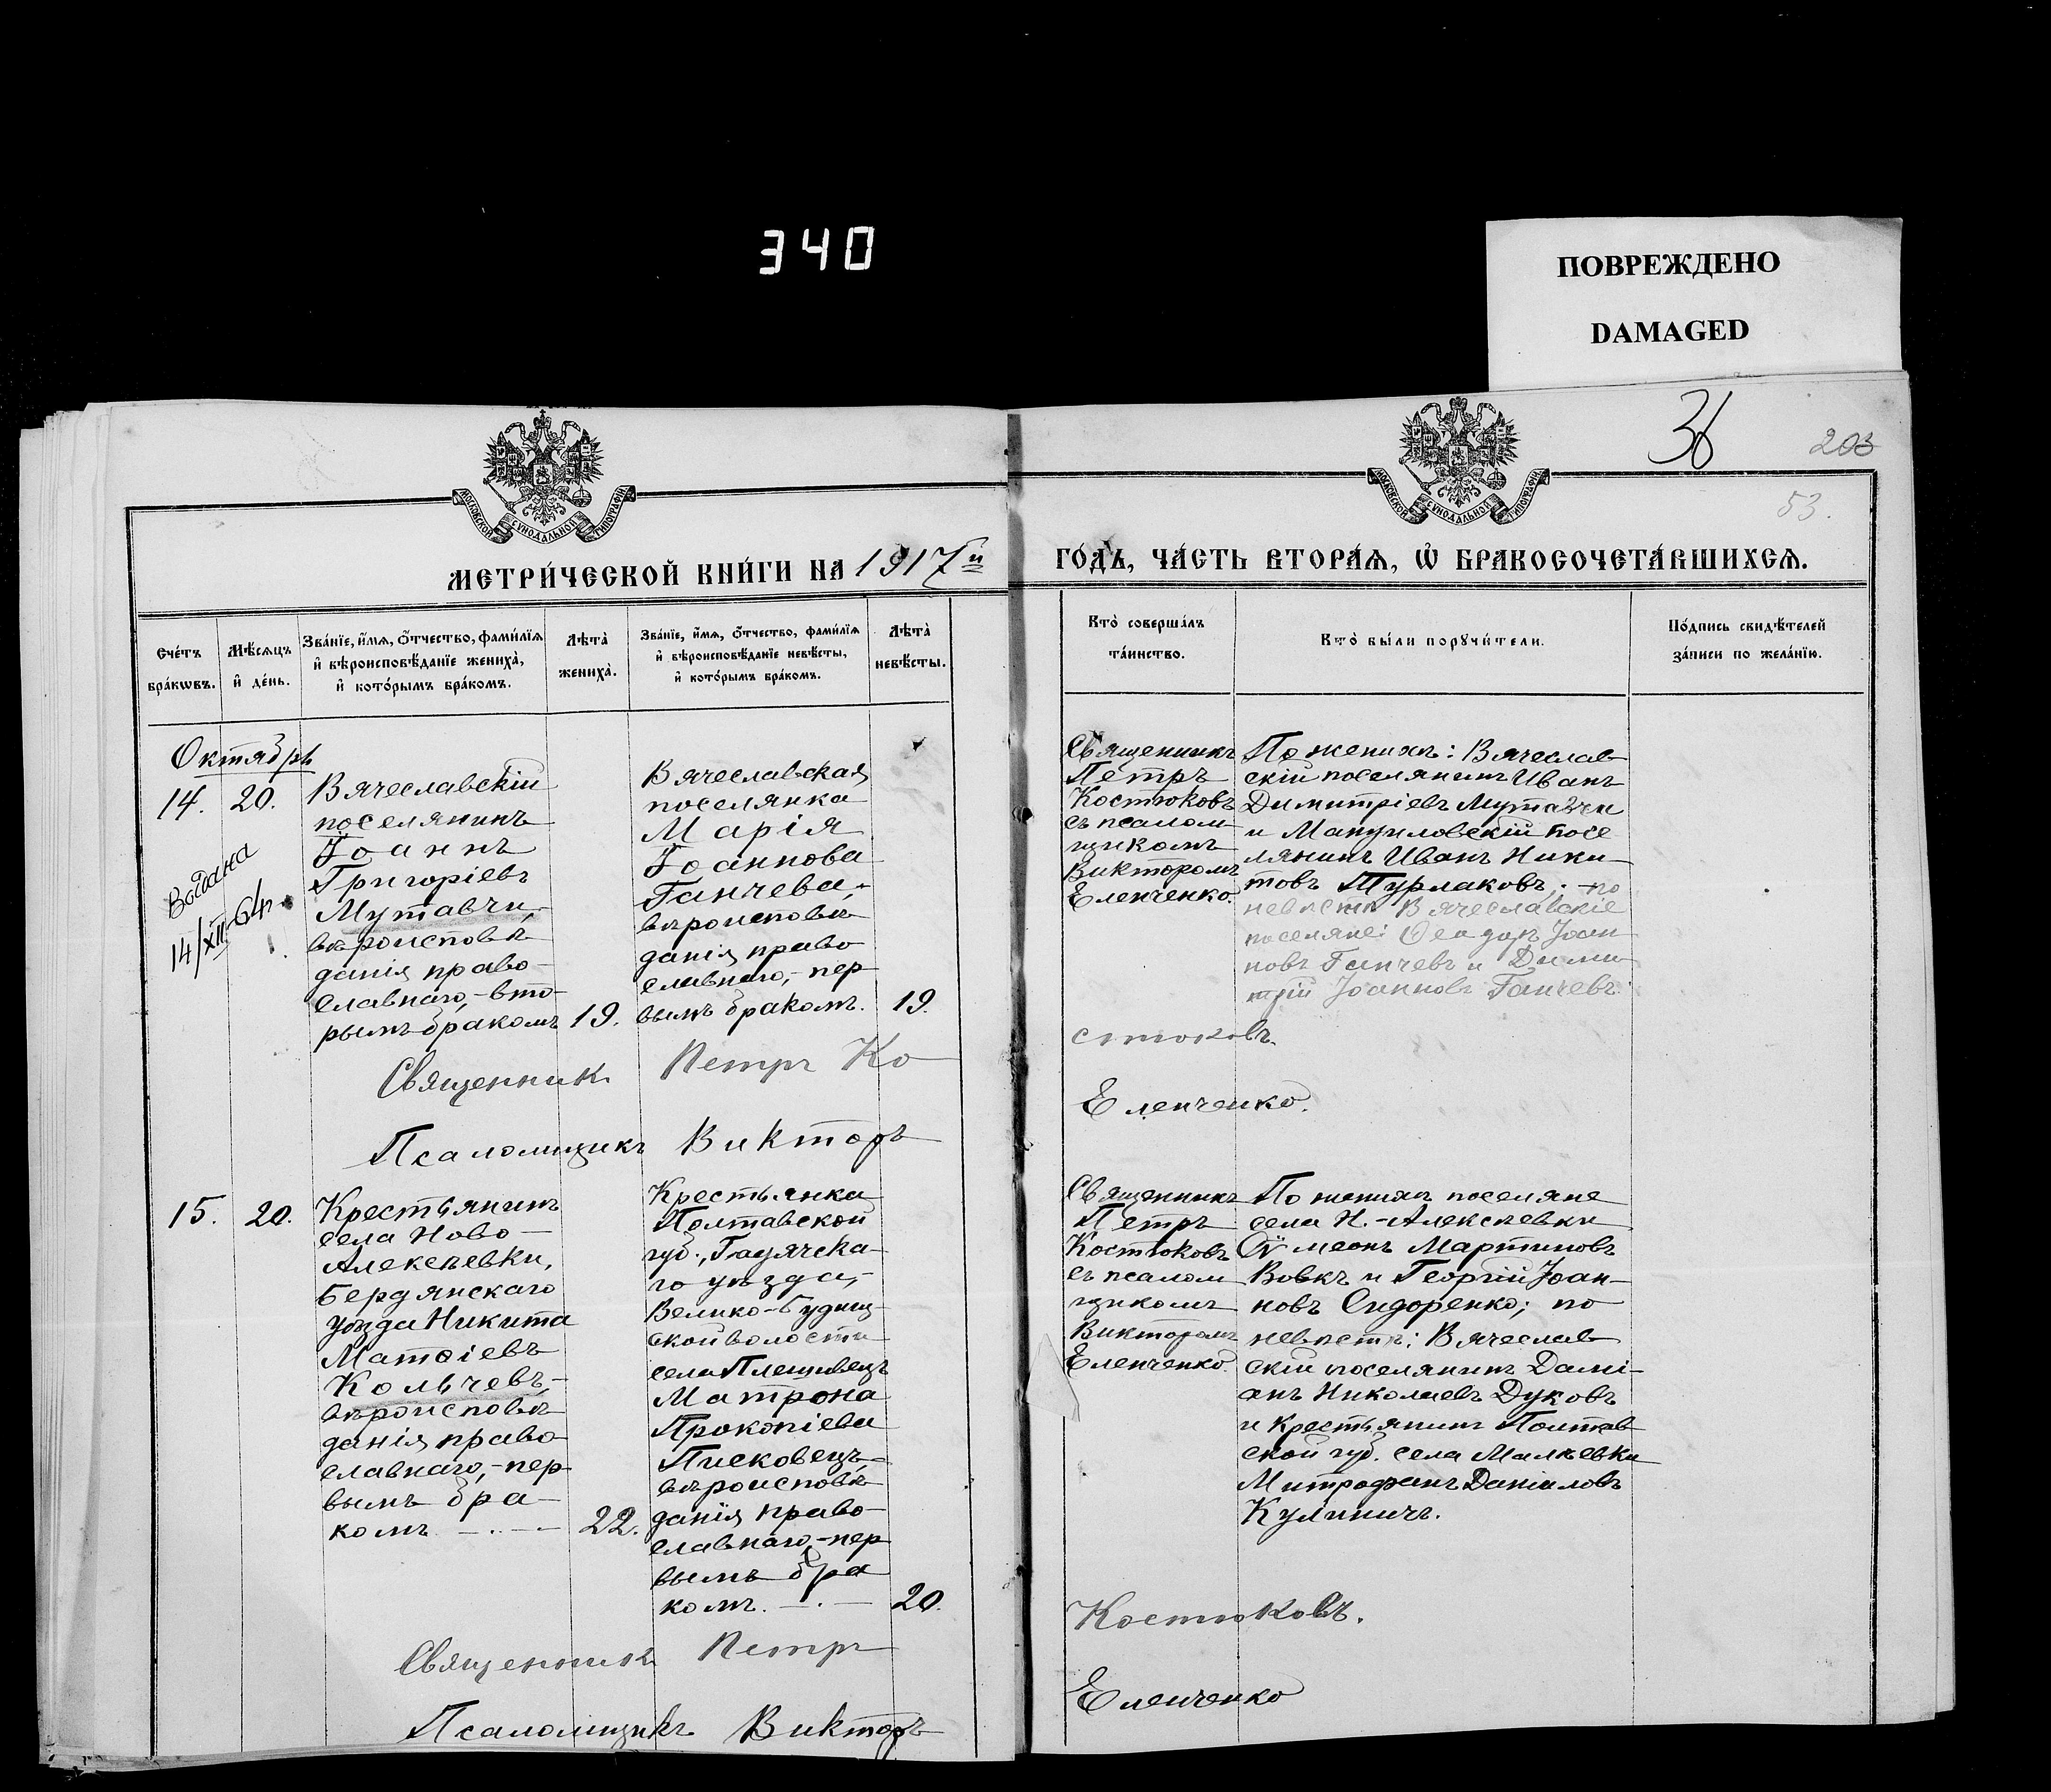 340
ПОВРЕЖДЕНО
DAMAGED
36
203
53.
МОСКОВСКОЙ СѴНОДАЛЬНОЙ ТИПОГРАФІИ
МОСКОВСКОЙ СѴНОДАЛЬНОЙ ТИПОГРАФІИ
МЕТРИ́ЧЕСКОЙ КНИ́ГИ НА 1917й ГО́ДЪ, ЧА́СТЬ ВТОРА́Я, Ѽ БРАКОСОЧЕТА́ВШИХСЯ.
Сче́тъ
бра́кѡвъ.
Мѣ́сяцъ
и҆ де́нь.
Зва́нїе, и҆́мя, ѻ҆́тчество, фами́лїя
и҆ вѣроисповѣ́данїе жениха̀,
и҆ кото́рымъ бра́комъ.
Лѣта̀
жениха̀.
Зва́нїе, и҆́мя, ѻ҆́тчество, фами́лїя
и҆ вѣроисповѣ́данїе невѣ́сты,
и҆ кото́рымъ бра́комъ.
Лѣта̀
невѣ́сты.
Кто̀ соверша́лъ
та́инство.
Кто̀ бы́ли порꙋчи́тели.
По́дпись свидѣ́телей
за́писи по жела́нїю.
Октябрь
14.
20.
14/XII-64
Вячеславскій
поселянинъ
Іоаннъ
Григоріевъ
Мутавчи,-
вѣроисповѣ
данія право-
славнаго,-вто-
рымъ бракомъ
19.
Вячеславская
поселянка
Марія
Іоаннова
Ганчева,-
вѣроисповѣ
данія право
славнаго,-пер
вымъ бракомъ.
19.
Священникъ
Петръ
Костюковъ
съ псалом
щикомъ
Викторомъ
Еленченко.
По женихѣ: Вячеслав
скій поселянинъ Иванъ
Димитріевъ Мутавчи
и Мануиловскій посе
лянинъ Иванъ Ники-
товъ Турлаковъ; -по
невѣстѣ Вячеславскіе
поселяне: Ѳеодоръ Іоан
новъ Ганчевъ и Дими
трій Іоанновъ Ганчевъ.
Священникъ Петръ Ко
стюковъ.
Псаломщикъ Викторъ
Еленченко.
15.
20.
Крестьянинъ
села Ново-
Алексѣевки,
Бердянскаго
уѣзда Никита
Матѳіевъ
Кольчевъ,-
вѣроисповѣ
данія право
славнаго,-пер
вымъ бра-
комъ. -.-
22.
Крестьянка
Полтавской
губ., Гадячска-
го уѣзда,-
Велико-Будищ-
ской волости
села Плешивецъ
Матрона
Прокопіева
Писковецъ,-
вѣроисповѣ
данія право-
славнаго,-пер
вымъ бра
комъ. -.-
20.
Священникъ
Петръ
Костюковъ
съ псалом
щикомъ
Викторомъ
Еленченко.
По женихѣ поселяне
села Н.-Алексѣевки
Сѵмеонъ Мартиновъ
Вовкъ и Георгій Іоан-
новъ Сидоренко; по
невѣстѣ: Вячеслав
скій поселянинъ Дамі-
анъ Николаевъ Дуковъ
и крестьянинъ Полтав
ской губ. села Малѣевки
Митрофанъ Даніиловъ
Кулиничъ.
Священникъ Петръ
Костюковъ.
Псаломщикъ Викторъ
Еленченко